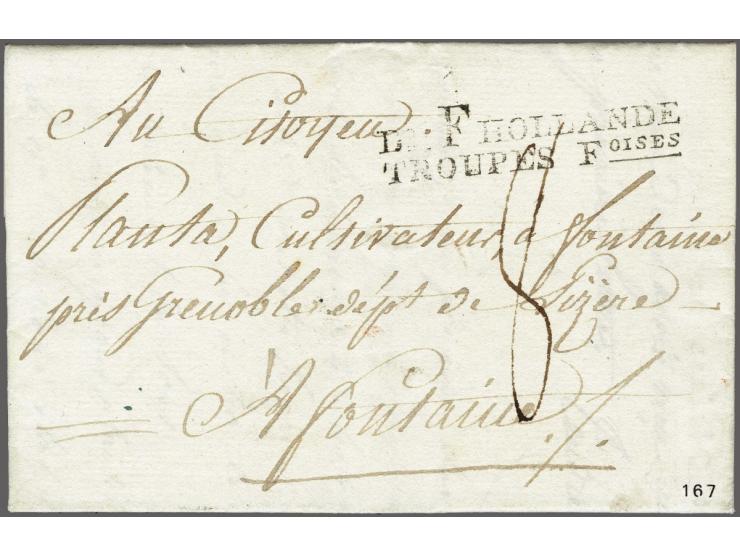 Au Citoyen.
DON F HOLLANDE
TROUPES FOISES
Planta, Cultivateur, à fontaine
près Grenoble dépt de Lizère
A fontaine
8
167